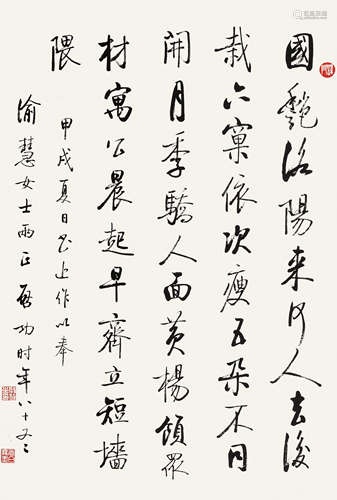 國艷洛陽來何人去後
栽六窠依次瘦五朵不同
開月季驕人面黃楊領眾
材寓公晨起早齊立短墻
隈
甲戌夏日書近作以奉
渝慧女士兩正啟功时年八十又二